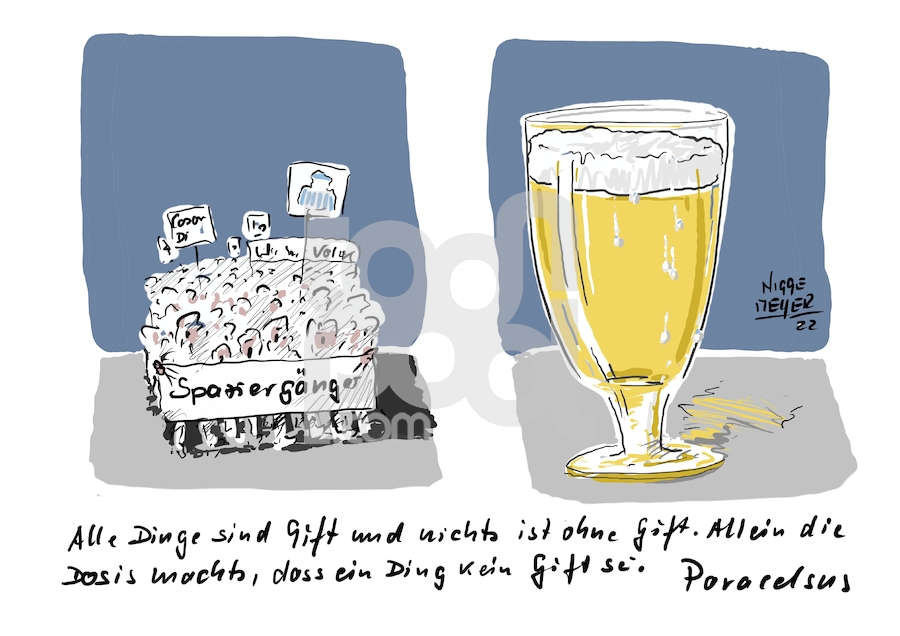 Spaziergänger
NIGGE
MEYER
22
Alle Dinge sind Gift und nichts ist ohne Gift. Allein die
Dosis machts, dass ein Ding kein Gift sei. Paracelsus
.com